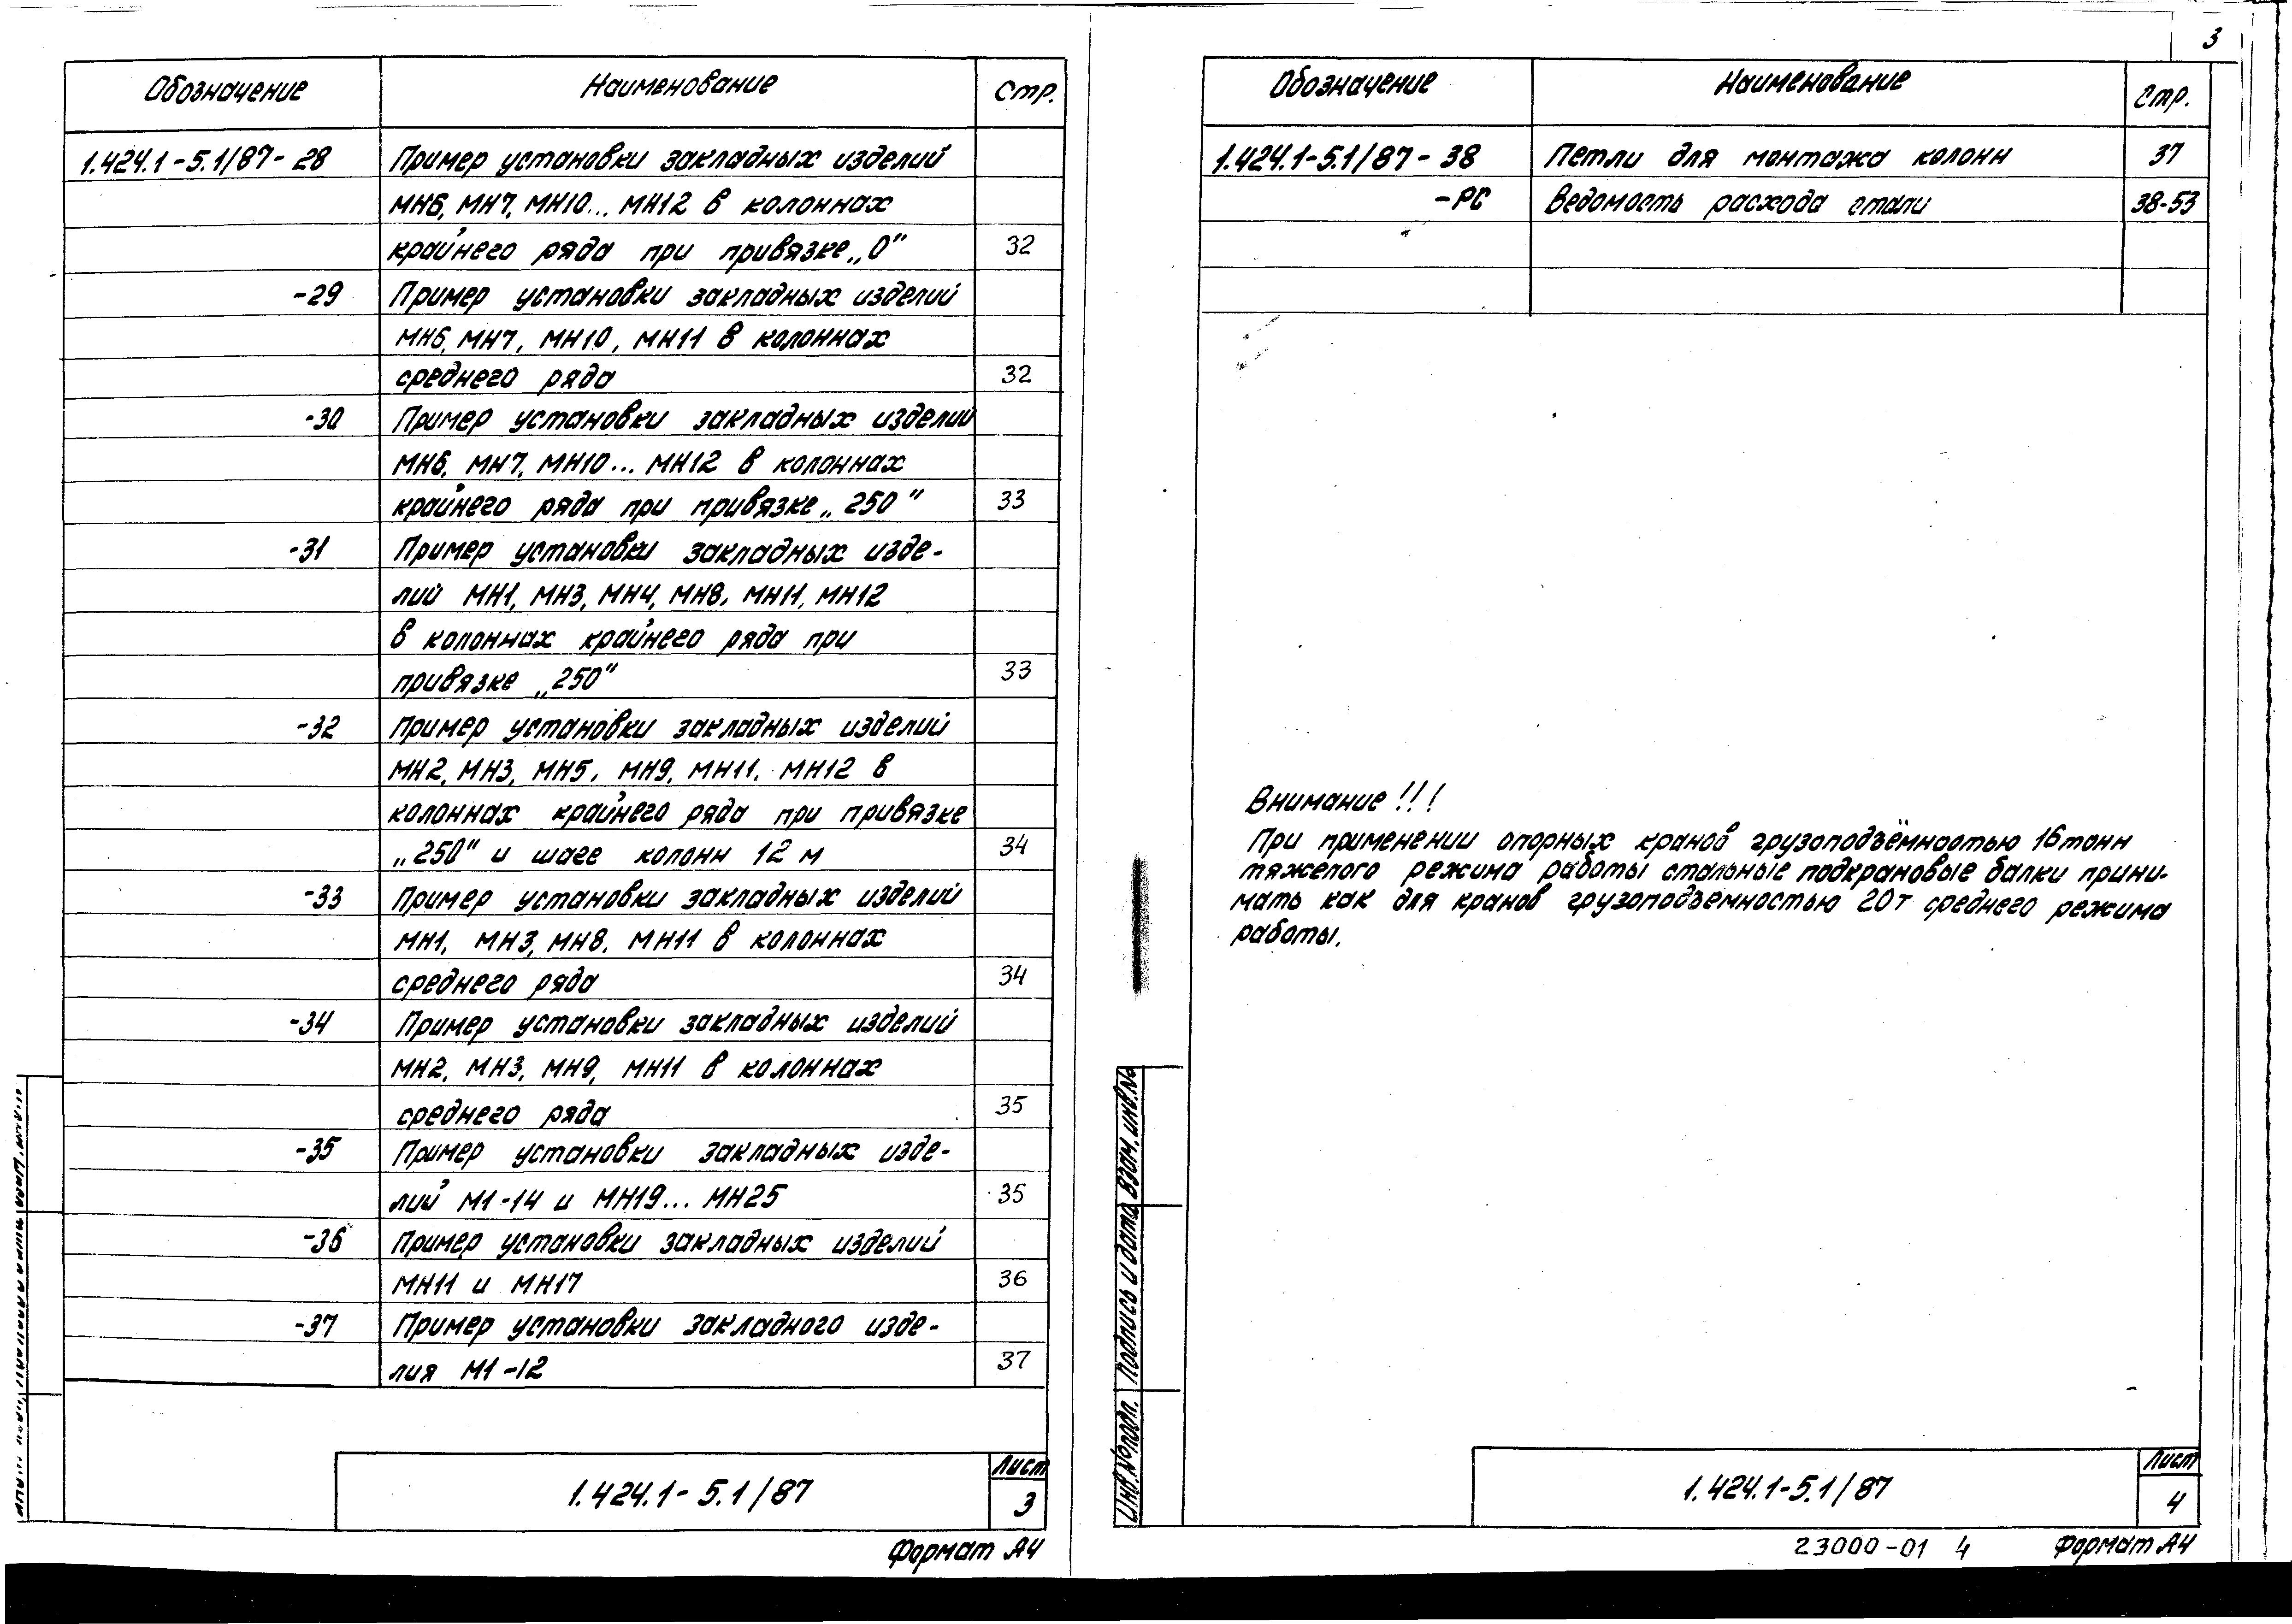 Обозначение Наименование Стр.
1.424.1-5.1/87-28 Пример установки закладных изделий
МН6, МН7, МН10... МН12 в колоннах
крайнего ряда при привязке „0" 32
-29 Пример установки закладных изделий
МН6, МН7, МН10, МН11 в колоннах
среднего ряда 32
-30 Пример установки закладных изделий
МН6, МН7, МН10... МН12 в колоннах
крайнего ряда при привязке „250" 33
-31 Пример установки закладных изде-
лий МН1, МН3, МН4, МН8, МН11, МН12
в колоннах крайнего ряда при
привязке „250" 33
-32 Пример установки закладных изделий
МН2, МН3, МН5, МН9, МН11, МН12 в
колоннах крайнего ряда при привязке
„250" и шаге колонн 12 м 34
-33 Пример установки закладных изделий
МН1, МН3, МН8, МН11 в колоннах
среднего ряда 34
-34 Пример установки закладных изделий
МН2, МН3, МН9, МН11 в колоннах
среднего ряда 35
-35 Пример установки закладных изде-
лий М1-14 и МН19... МН25 35
-36 Пример установки закладных изделий
МН11 и МН17 36
-37 Пример установки закладного изде-
лия М1-12 37
1.424.1-5.1/87
Лист
3
Формат А4
3
Обозначение Наименование Стр.
1.424.1-5.1/87-38 Петли для монтажа колонн 37
-РС Ведомость расхода стали 38-53
Внимание!!!
При применении опорных кранов грузоподъёмностью 16тонн
тяжелого режима работы стальные подкрановые балки прини-
мать как для кранов грузоподъемностью 20т среднего режима
работы.
Инв.№подл. Подпись и дата Взам.инв.№
1.424.1-5.1/87
Лист
4
23000-01 4 Формат А4